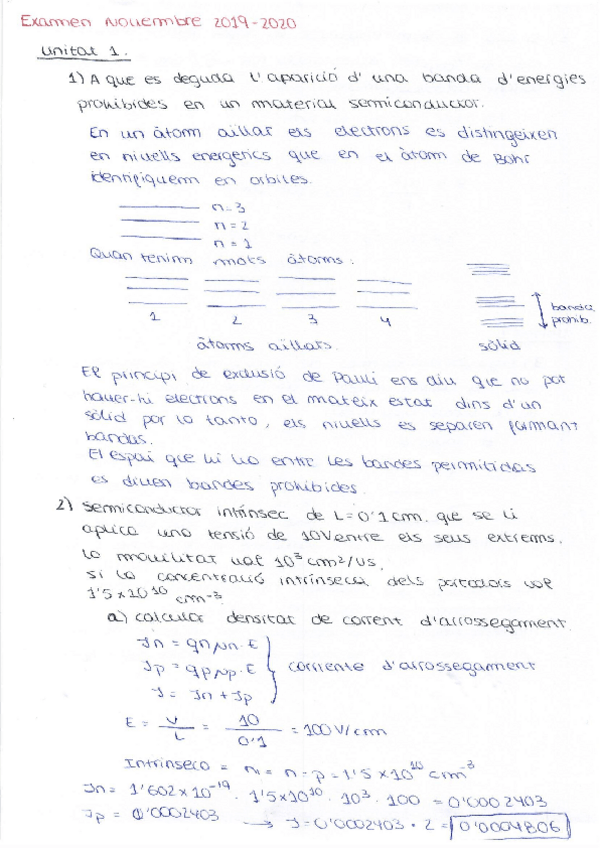 Examen Novembre 2019-2020
Unitat 1.
1) A que es deguda l'aparició d'una banda d'energies
prohibides en un material semiconductor.
En un àtom aïllat els electrons es distingeixen
en nivells energètics que en el àtom de Bohr
identifiquem en orbites.
n=3
n=2
n=1
Quan tenim mots àtoms:
1 2 3 4
banda
prohib.
àtoms aïllats. sòlid
El principi de exclusió de Pauli ens diu que no pot
haver-hi electrons en el mateix estat dins d'un
sòlid por lo tanto, els nivells es separen formant
bandas.
El espai que hi ha entre les bandes permitidas
es diuen bandes prohibides.
2) Semiconductor intrínsec de L=0'1cm. que se li
aplica una tensió de 10V entre els seus extrems.
la movilitat val 10³ cm²/Vs.
Si la concentració intrínseca dels portadors val
1'5x10¹⁰ cm⁻³
a) calcular densitat de corrent d'arrossegament.
Jn = qnμn·E
Jp = qpμp·E
J = Jn + Jp
corriente d'arrossegament
E = V/L = 10/0'1 = 100V/cm
Intrinseco = ni = n = p = 1'5x10¹⁰ cm⁻³
Jn = 1'602x10⁻¹⁹ · 1'5x10¹⁰ · 10³ · 100 = 0'0002403
Jp = 0'0002403 → J=0'0002403 · 2 = 0'0004806